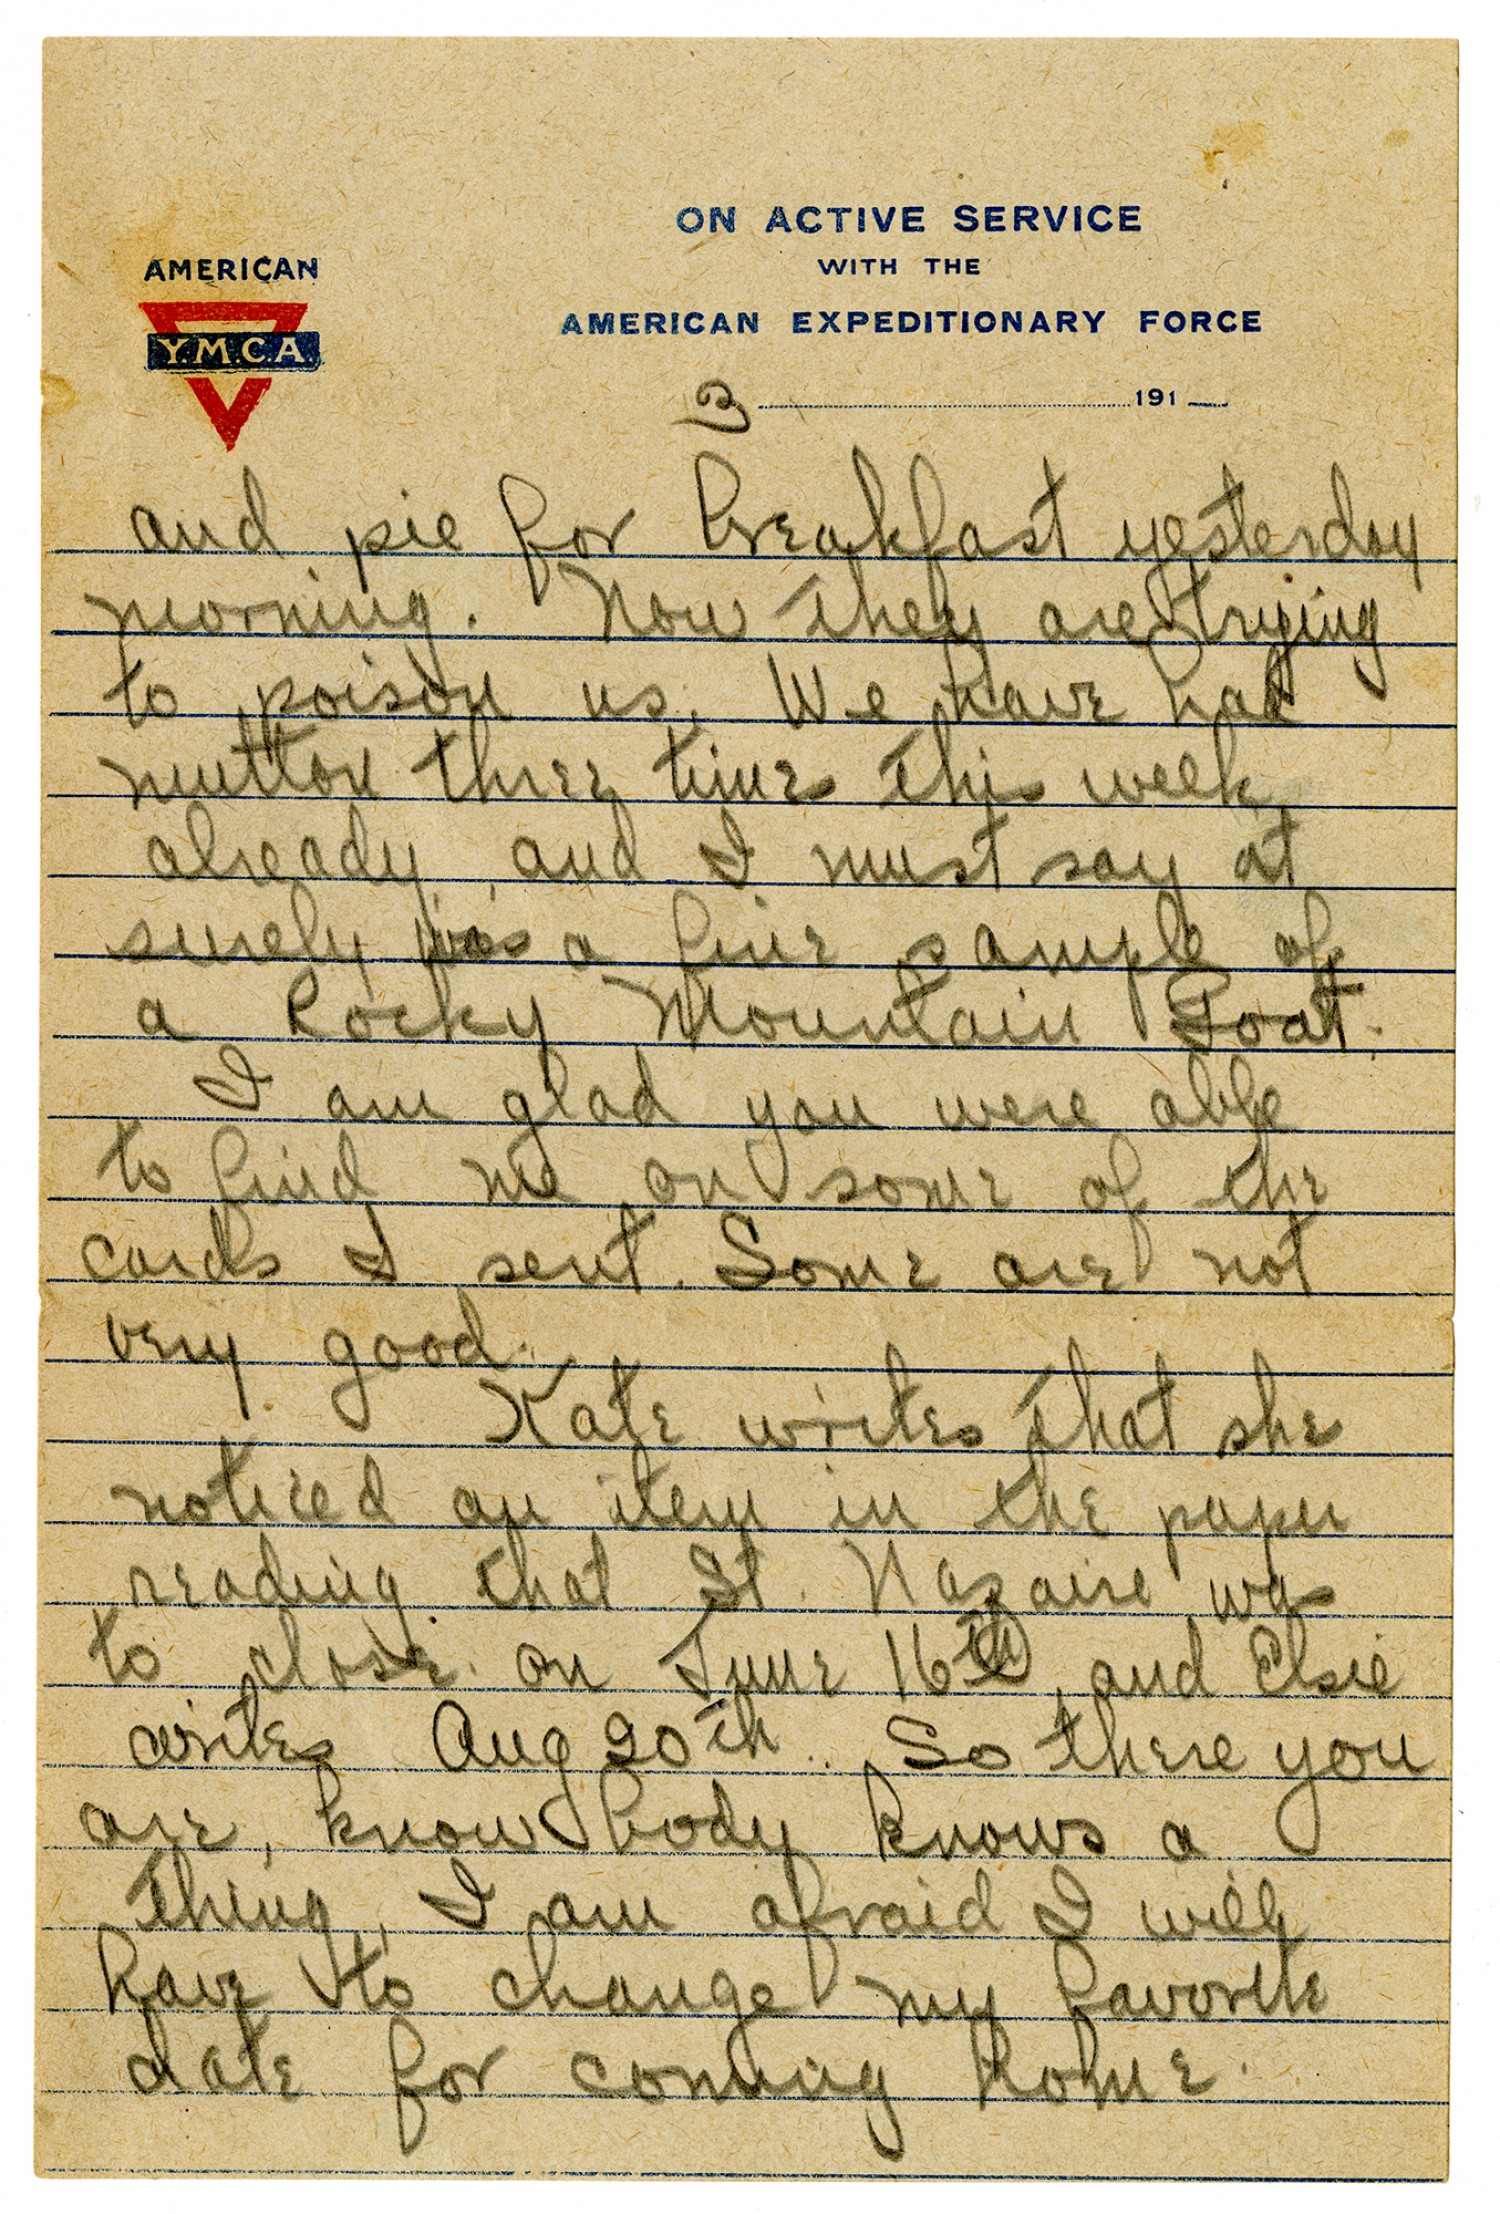 ON ACTIVE SERVICE
WITH THE
AMERICAN EXPEDITIONARY FORCE
AMERICAN
Y.M.C.A.
3 191
and pie for breakfast yesterday
morning. Now they are trying
to poison us. We have had
mutton three times this week
already, and I must say at
surely was a fine sample of
a Rocky Mountain Goat.
I am glad you were able
to find me on some of the
cards I sent. Some are not
very good.
Kate writes that she
noticed an item in the paper
reading that St. Nazaire was
to close on June 16th, and Elsie
writes Aug 20th. So there you
are, know body knows a
thing, I am afraid I will
have to change my favorite
date for coming home.